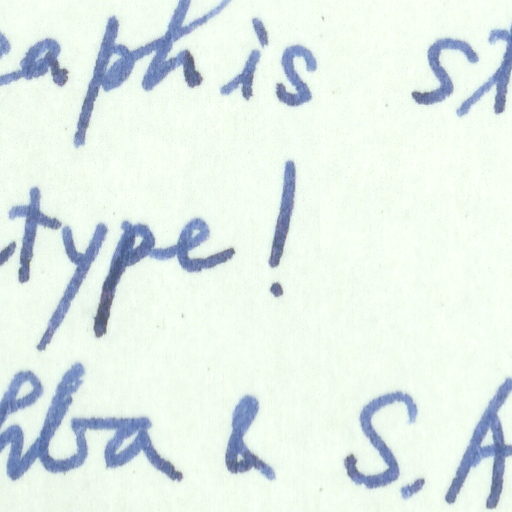 eaphis st
type!
hba & S.A